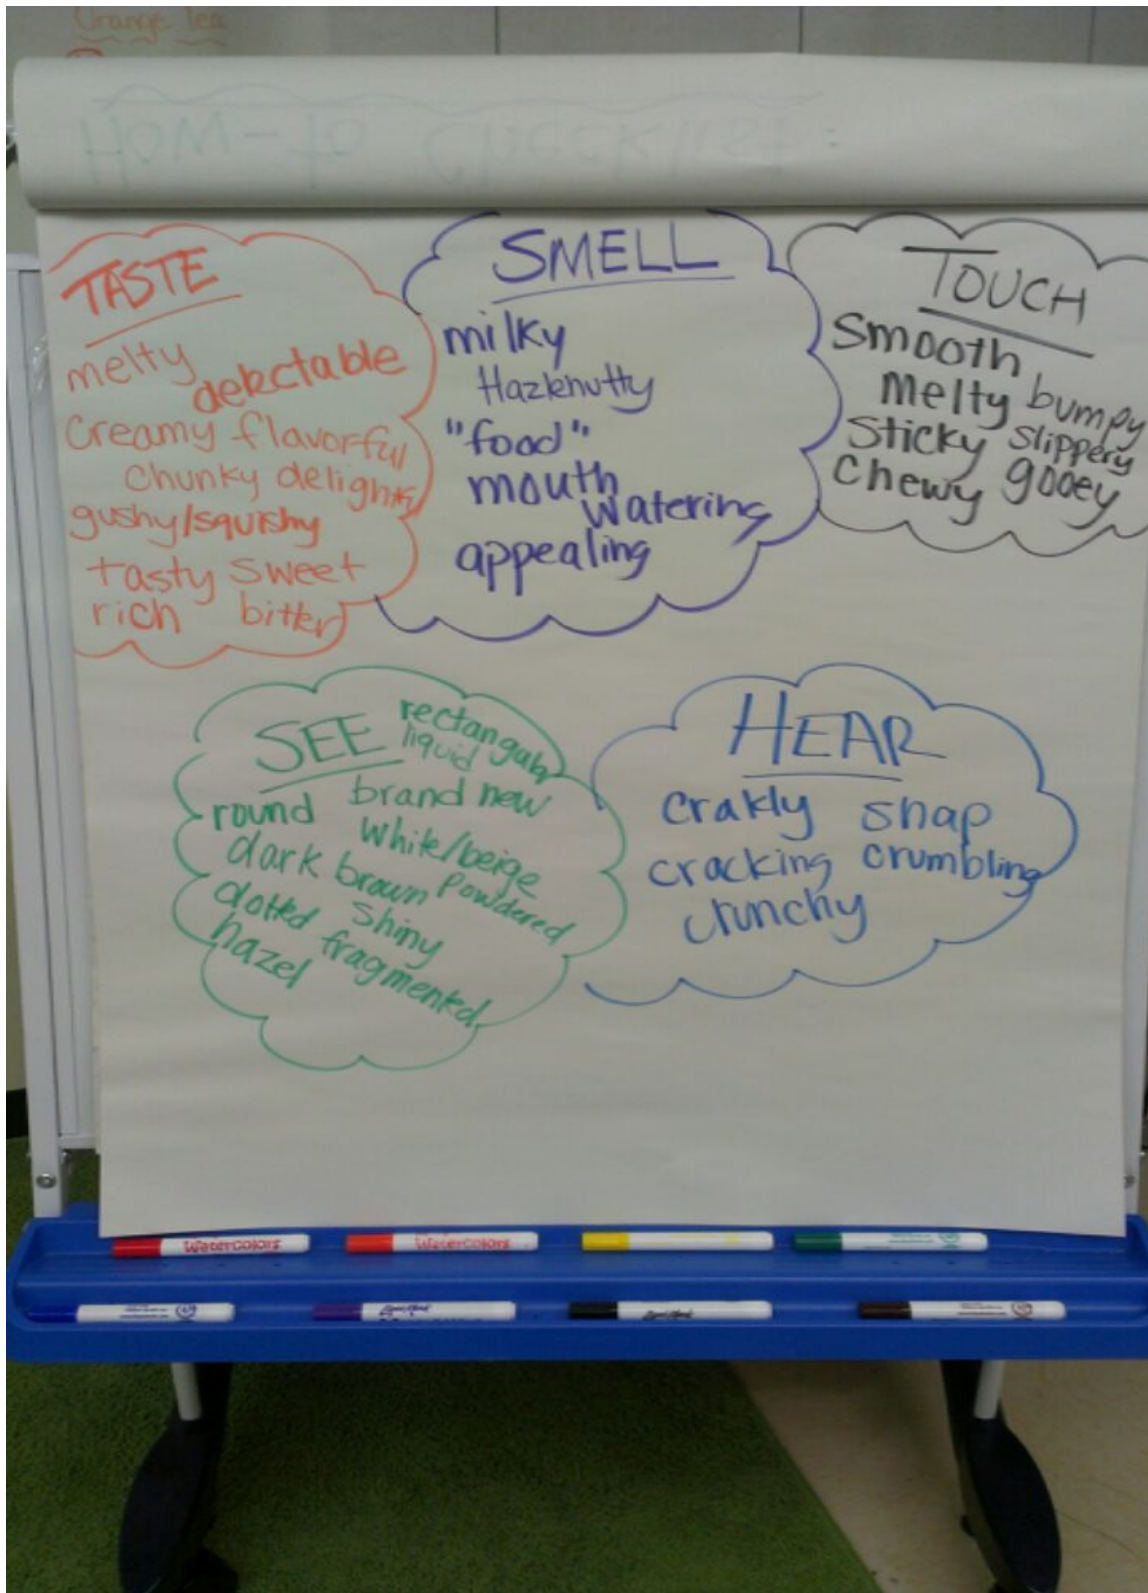 Orange Tea
How-to Checklist:
TASTE
melty
delectable
Creamy flavorful
Chunky
gushy/squishy
tasty sweet
rich bitter
SMELL
milky
Hazlenutty
"food"
mouth
watering
appealing
TOUCH
Smooth
Melty bumpy
Sticky slippery
Chewy gooey
SEE
liquid
brand new
round
white/beige
dark brown powdered
dotted shiny
hazel fragmented
HEAR
crakly snap
cracking crumbling
crunchy
Watercolors
Watercolors